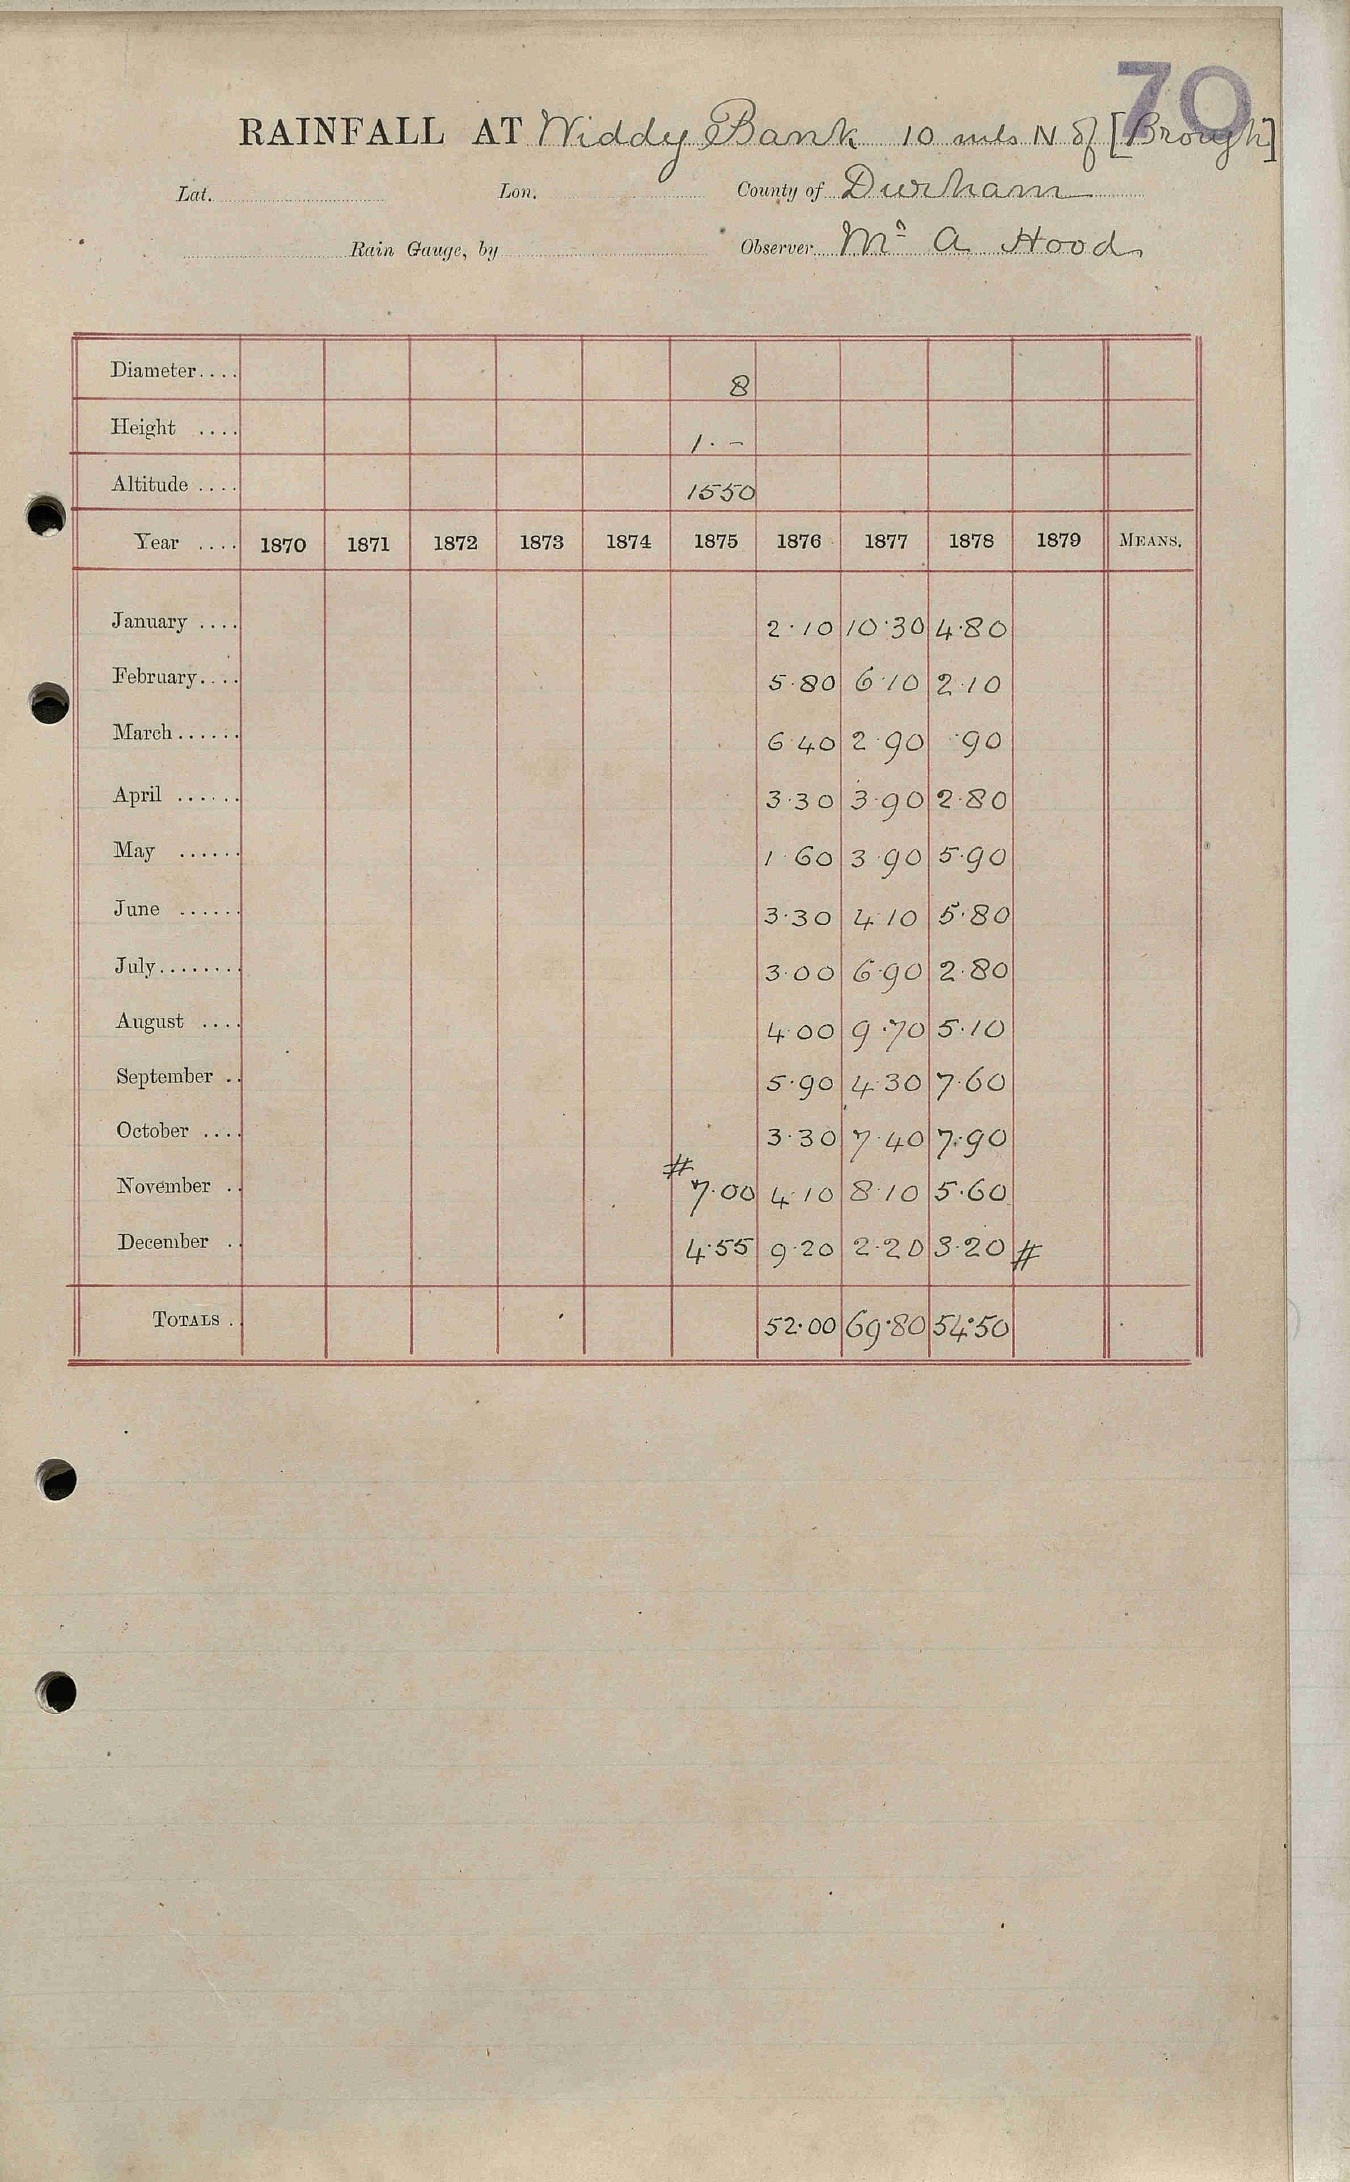 70
RAINFALL AT Widdy Bank 10 mls N of [Brough]
Lat. Lon. County of Durham
Rain Gauge, by Observer Mr A Hood
Diameter.... 8
Height .... 1. -
Altitude .... 1550
Year .... 1870 1871 1872 1873 1874 1875 1876 1877 1878 1879 MEANS.
January .... 2.10 10.30 4.80
February.... 5.80 6.10 2.10
March...... 6.40 2.90 .90
April ...... 3.30 3.90 2.80
May ...... 1.60 3.90 5.90
June ...... 3.30 4.10 5.80
July........ 3.00 6.90 2.80
August .... 4.00 9.70 5.10
September .. 5.90 4.30 7.60
October .... 3.30 7.40 7.90
November .. # 7.00 4.10 8.10 5.60
December .. 4.55 9.20 2.20 3.20 #
TOTALS . 52.00 69.80 54.50